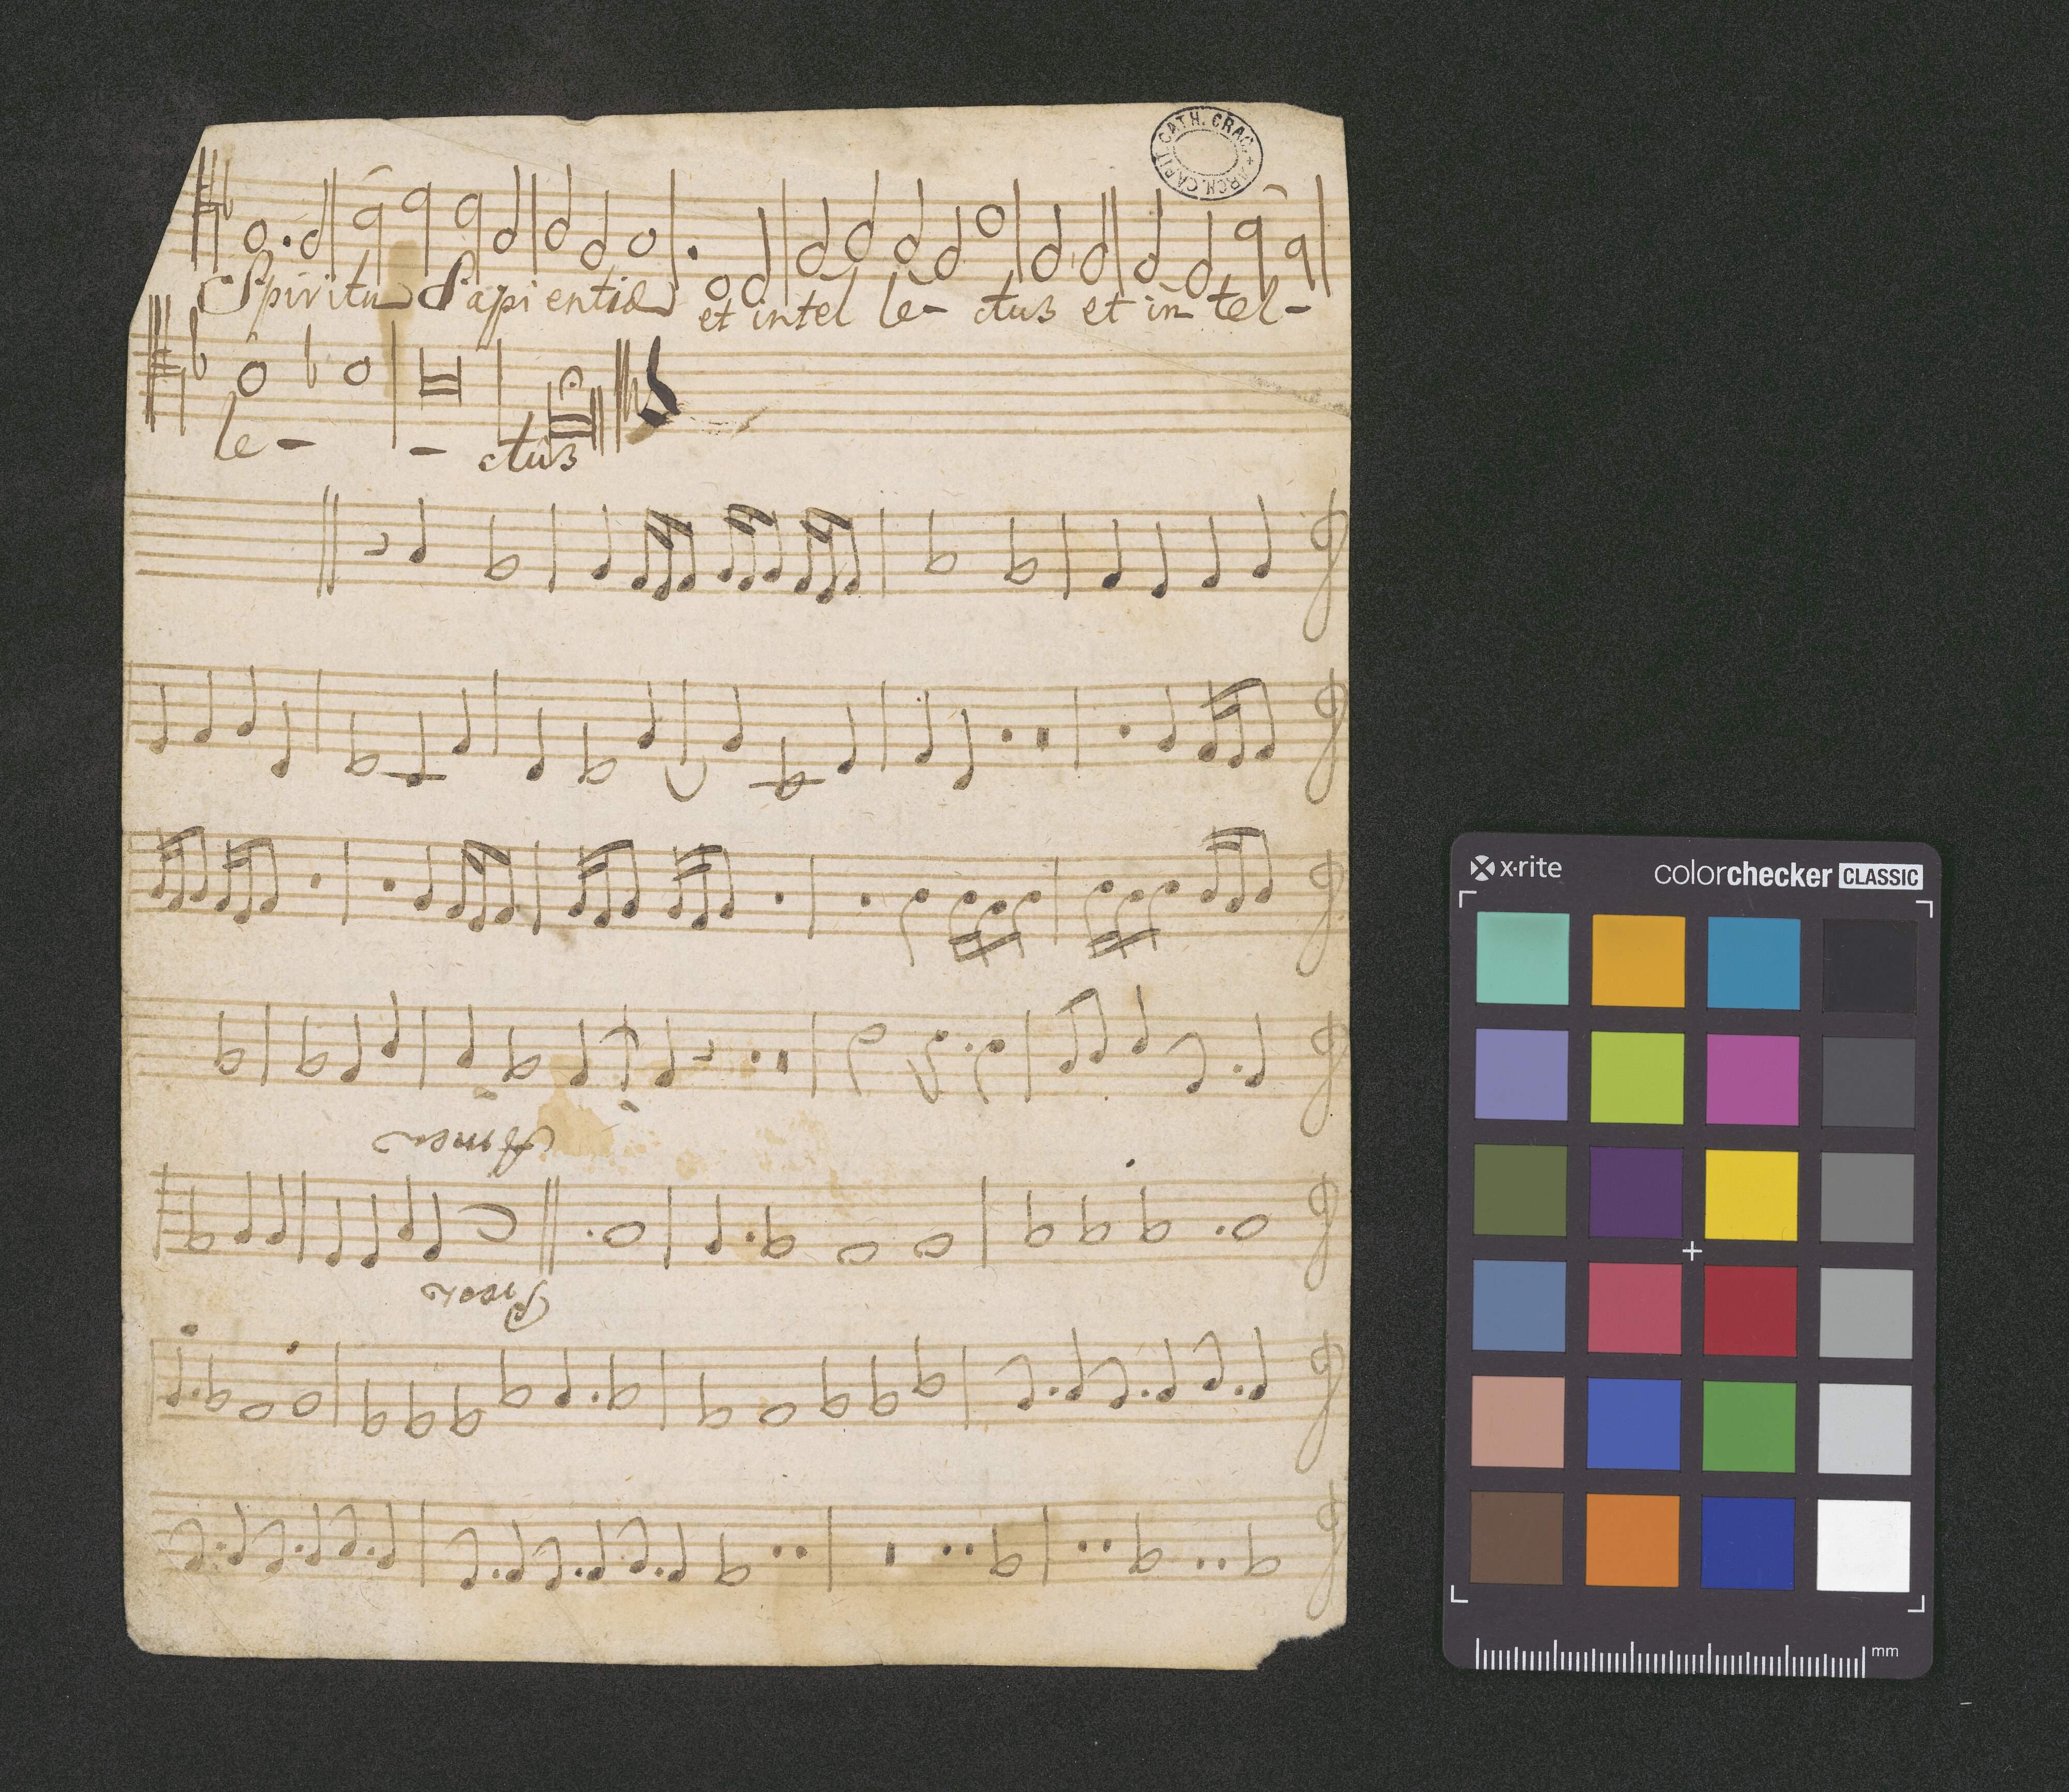 ARCH. CAPIT. CATH. CRAC.
Spiritu Sapientiæ et intel le- ctus et in tel-
le- - ctus
Amen
x·rite colorchecker CLASSIC
mm